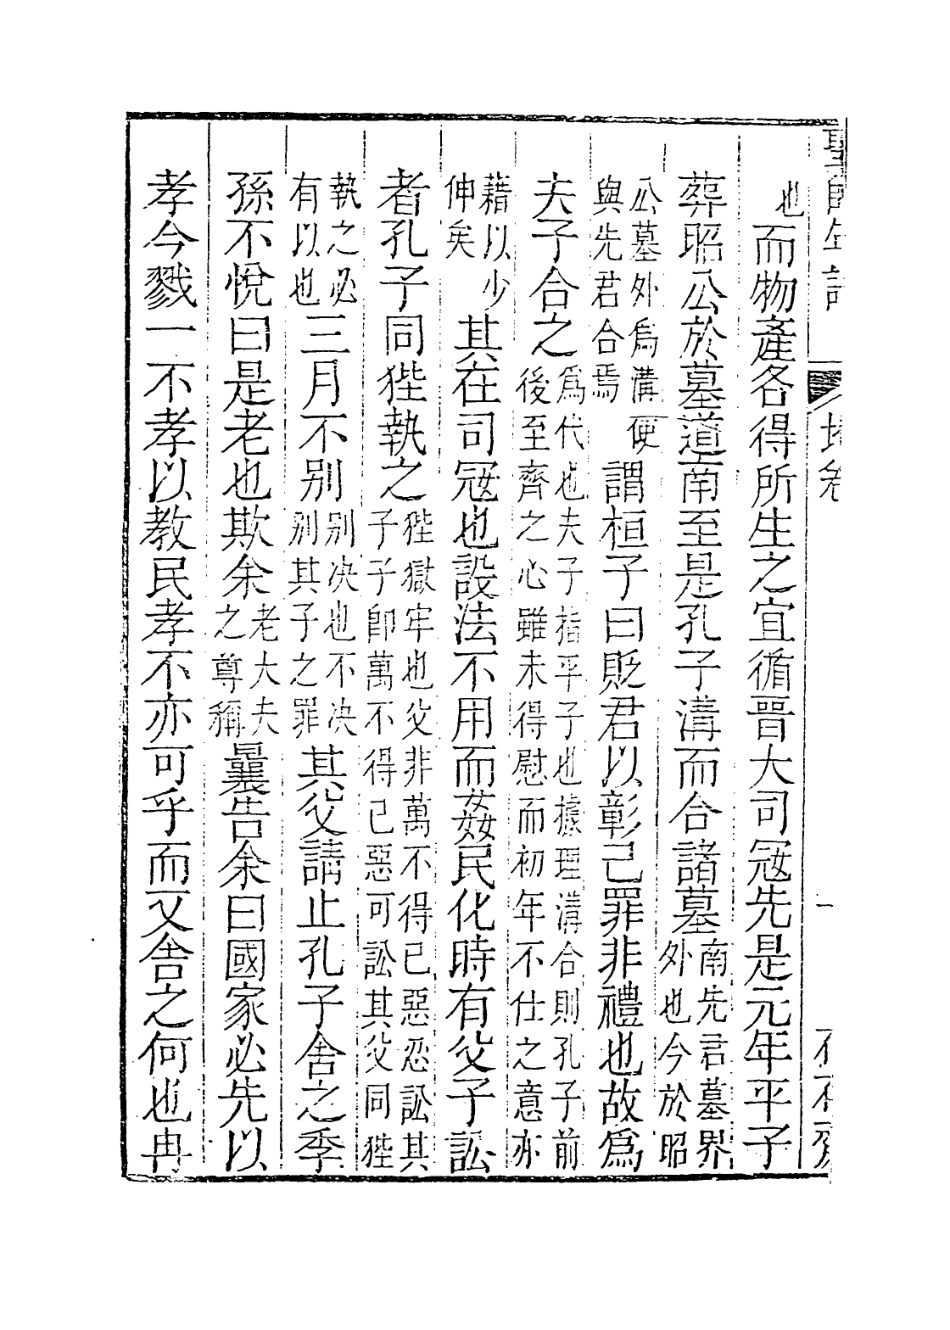 也而物產各得所生之宜循晉大司冦先是元年平子
葬昭公於墓道南至是孔子溝而合諸墓南先君墓界外也今於昭
公墓外爲溝便與先君合焉謂桓子曰貶君以彰己罪非禮也故爲
夫子合之爲代也夫子指平子也據理溝合則孔子前後至齊之心雖未得慰而初年不仕之意亦
藉以少伸矣其在司冦也設法不用而姦民化時有父子訟
者孔子同狴執之狴獄牢也父非萬不得已惡忍訟其子子卽萬不得已惡可訟其父同狴
執之必有以也三月不别别決也不決别其子之罪其父請止孔子舍之季
孫不悅曰是老也欺余老大夫之尊稱曩告余曰國家必先以
孝今戮一不孝以教民孝不亦可乎而又舍之何也冉